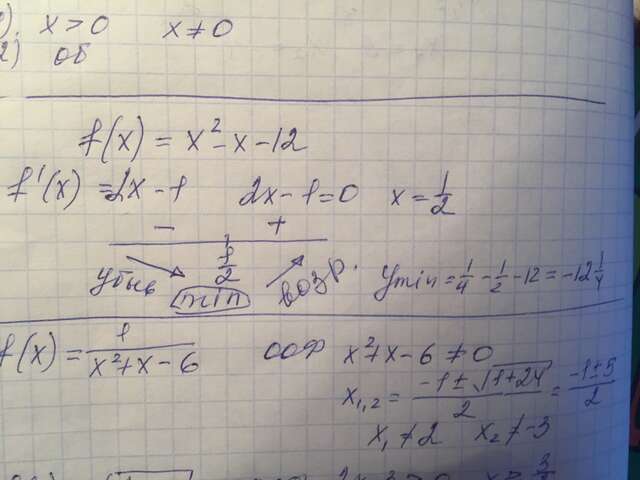 x > 0 x ≠ 0
2) об
f(x) = x² - x - 12
f'(x) = 2x - 1 2x - 1 = 0 x = 1/2
- +
1/2
убыв min возр. y min = 1/4 - 1/2 - 12 = -12 1/4
f(x) = 1/(x² + x - 6) ООФ x² + x - 6 ≠ 0
x₁,₂ = (-1 ± √(1 + 24))/2 = (-1 ± 5)/2
x₁ ≠ 2 x₂ ≠ -3